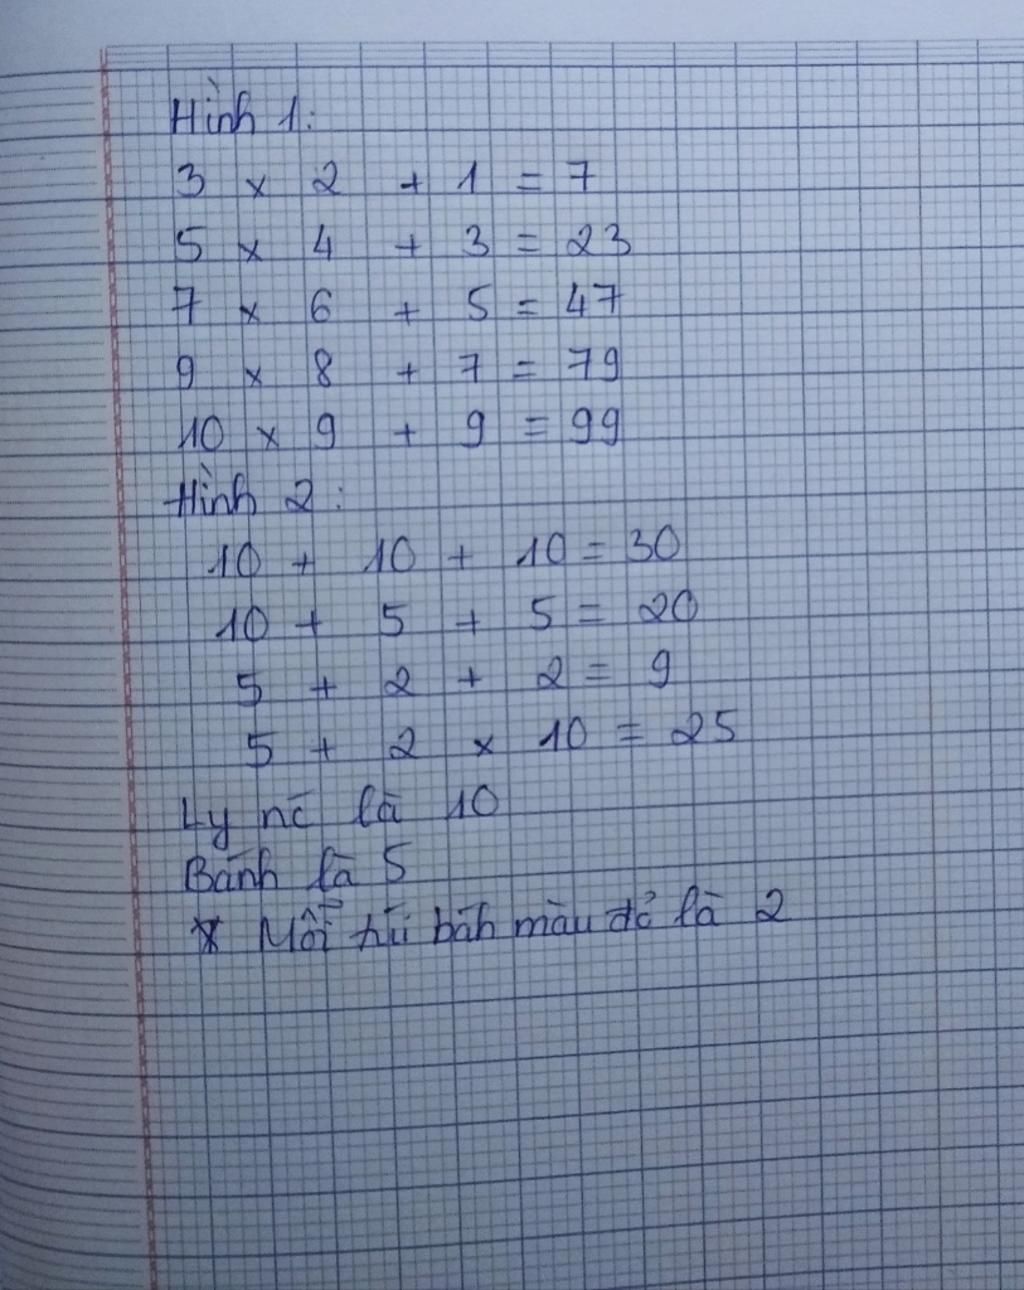 Hình 1:
3 x 2 + 1 = 7
5 x 4 + 3 = 23
7 x 6 + 5 = 47
9 x 8 + 7 = 79
10 x 9 + 9 = 99
Hình 2:
10 + 10 + 10 = 30
10 + 5 + 5 = 20
5 + 2 + 2 = 9
5 + 2 x 10 = 25
Ly nc là 10
Bánh là 5
* Mỗi túi bán màu đỏ là 2